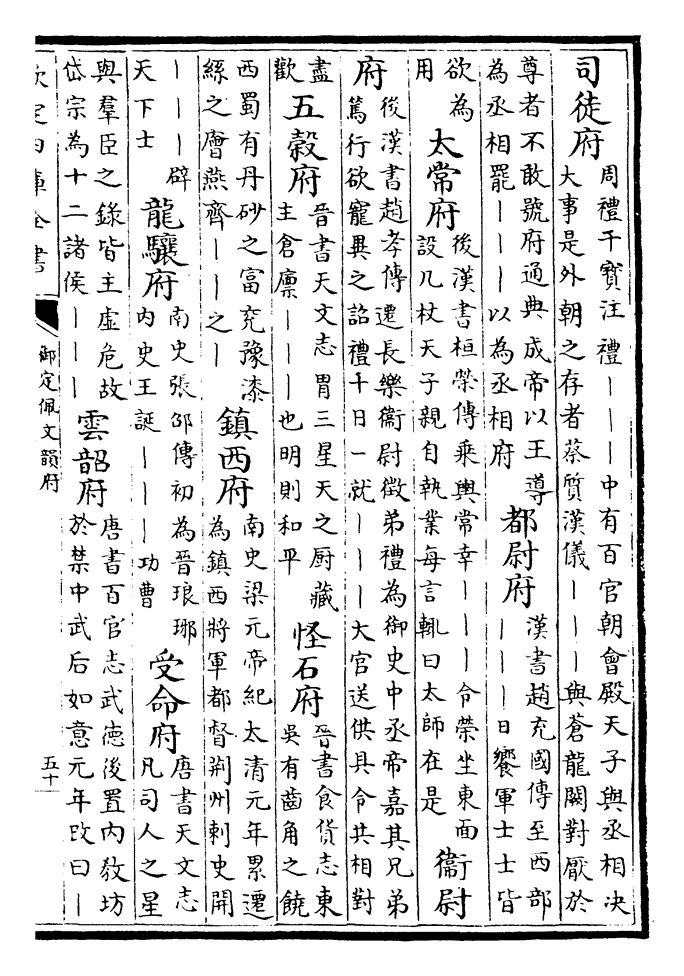 司徒府
周禮干寳注禮｜｜｜中有百官朝會殿天子與丞相决
大事是外朝之存者蔡質漢儀｜｜｜與蒼龍闕對厭於
尊者不敢號府通典成帝以王導
為丞相罷｜｜｜以為丞相府
都尉府
漢書趙充國傳至西部
｜｜｜日饗軍士士皆
欲為
用
太常府
後漢書桓榮傳乗輿常幸｜｜｜令榮坐東面
設几杖天子親自執業每言輒曰太師在是
衞尉
府
後漢書趙孝傳遷長樂衞尉徵弟禮為御史中丞帝嘉其兄弟
篤行欲寵異之詔禮十日一就｜｜｜大官送供具令共相對
盡
歡
五穀府
晉書天文志胃三星天之厨藏
主倉廪｜｜｜也明則和平
怪石府
晉書食貨志東
吳有齒角之饒
西蜀有丹砂之富兖豫漆
絲之廥燕齊｜｜之｜
鎮西府
南史梁元帝紀太清元年累遷
為鎮西將軍都督荆州刺史開
｜｜｜辟
天下士
龍驤府
南史張邵傳初為晉琅琊
内史王誕｜｜｜功曹
受命府
唐書天文志
凡司人之星
與羣臣之錄皆主虚危故
岱宗為十二諸侯｜｜｜
雲韶府
唐書百官志武德後置内敎坊
於禁中武后如意元年改曰｜
欽定四庫全書
御定佩文韻府
五十